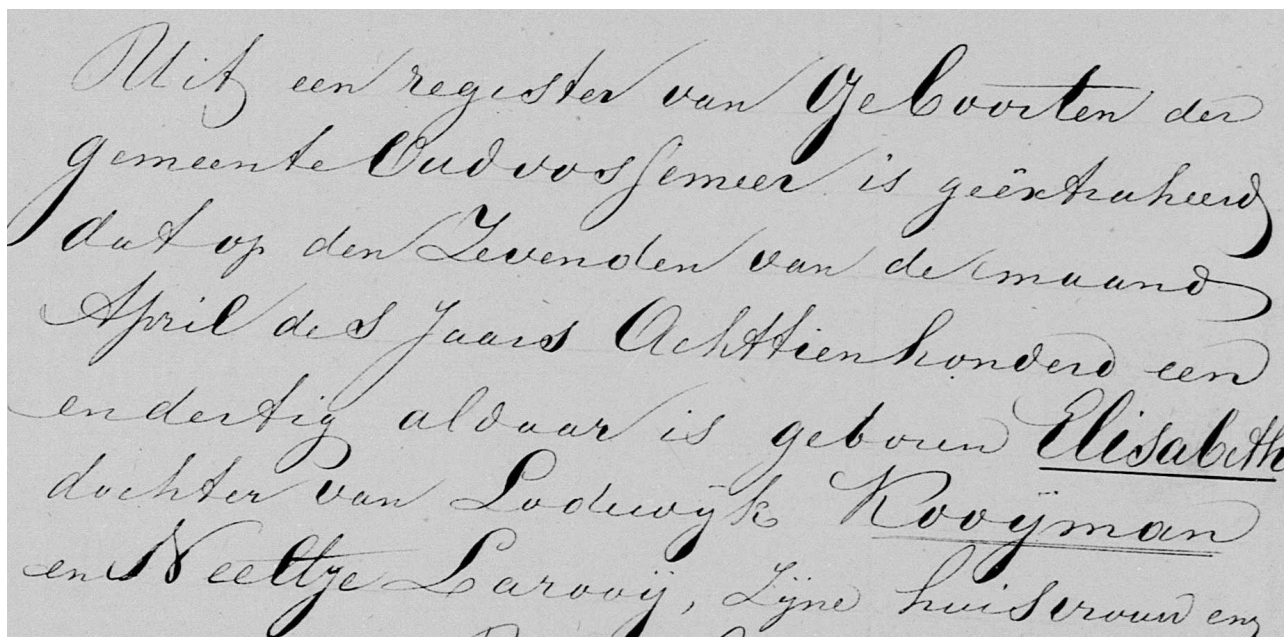 Uit een register van Geboorten der
gemeente Oudvossemeer is geëxtraheerd
dat op den Zevenden van de maand
April des Jaars Achttienhonderd een
en dertig aldaar is geboren Elisabeth
dochter van Lodewijk Kooÿman
en Neeltje Larooij, Zijne huisvrouw en